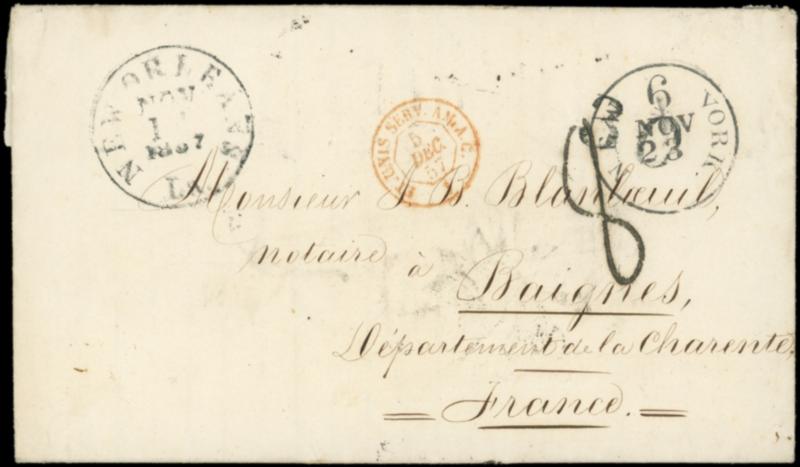 NEW ORLEANS
NOV
1857
LA.
ET. UNIS SERV. AM. A.C.
5
DEC.
57
NEW YORK
6
NOV
23
8
Monsieur J. B. Blanloeuil,
notaire à
Baignes,
Département de la Charente,
France.